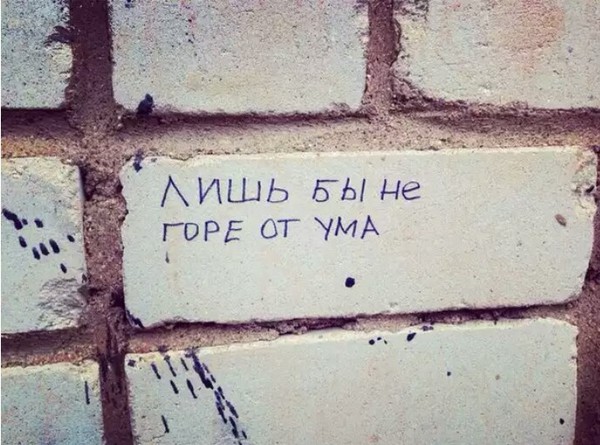 ЛИШЬ БЫ не
ГОРЕ ОТ УМА